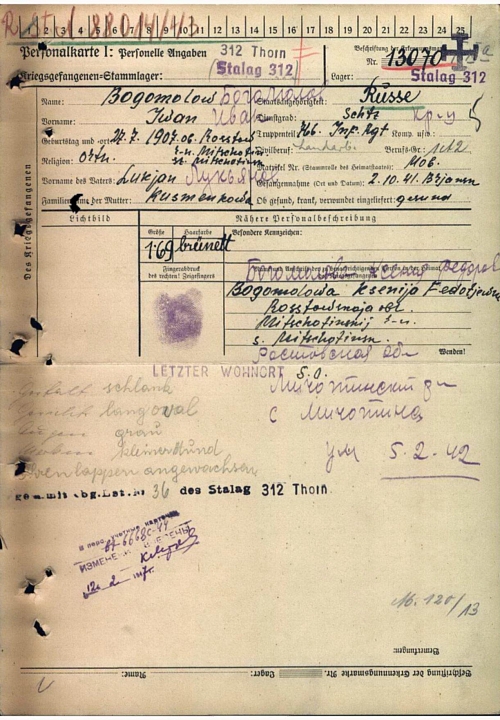 2 3 4 5 6 7 8 9 10 11 12 13 14 15 16 17 18 19 20 21 22 23 24 25
Personalkarte I: Personelle Angaben
312 Thorn
Stalag 312
Kriegsgefangenen-Stammlager:
Beschriftung der Erkennungsmarke
Nr. 13070
Lager: Stalag 312
Des Kriegsgefangenen
Name: Bogomolow Богомолов
Staatsangehörigkeit: Russe
Vorname: Iwan Иван
Dienstgrad: Schtz Кр-ц
Geburtstag und -ort 1907. Ob. Rosstow
Truppenteil: Mob. Inf. Rgt Komp. usw.:
r-n. Mitschotin
s. Mitschotinm
Zivilberuf: Landarb. Berufs-Gr.:
Religion: Orth.
Matrikel Nr. (Stammrolle des Heimatstaates): Mob.
Vorname des Vaters: Lukjan Лукьян
Gefangennahme (Ort und Datum): 2.10.41. Brjansk
Familienname der Mutter: Kusmenkowa
Ob gesund, krank, verwundet eingeliefert: gesund
Lichtbild
Nähere Personalbeschreibung
Größe
Haarfarbe
Besondere Kennzeichen:
1.69
brünett
Fingerabdruck
des rechten Zeigefingers
Name und Anschrift der zu benachrichtigenden Person in der Heimat
Богомолова Ксения Федотов
Bogomolowa Ksenija Fedotjewna
Rosstowskaja obl.
Mitschotinskij r-n.
s. Mitschotinm.
Ростовская обл
Wenden!
LETZTER WOHNORT S.O.
Gestalt schlank
Мичотинский р-н
Gesicht langoval
с Мичотина
Augen grau
kleiner Mund
ум 5.2.42
Ohrenlappen angewachsen
36 des Stalag 312 Thorn.
В перс. учетные карточки
ИЗМЕНЕНИЯ ВНЕСЕНЫ
M. 120/13
Bemerkungen:
Beschriftung der Erkennungsmarke Nr.
Lager:
Name: